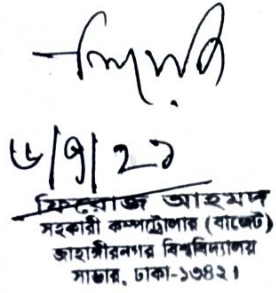 ৬/৭/২১
ফিরোজ আহমদ
সহকারী কম্পট্রোলার (বাজেট)
জাহাঙ্গীরনগর বিশ্ববিদ্যালয়
সাভার, ঢাকা-১৩৪২।